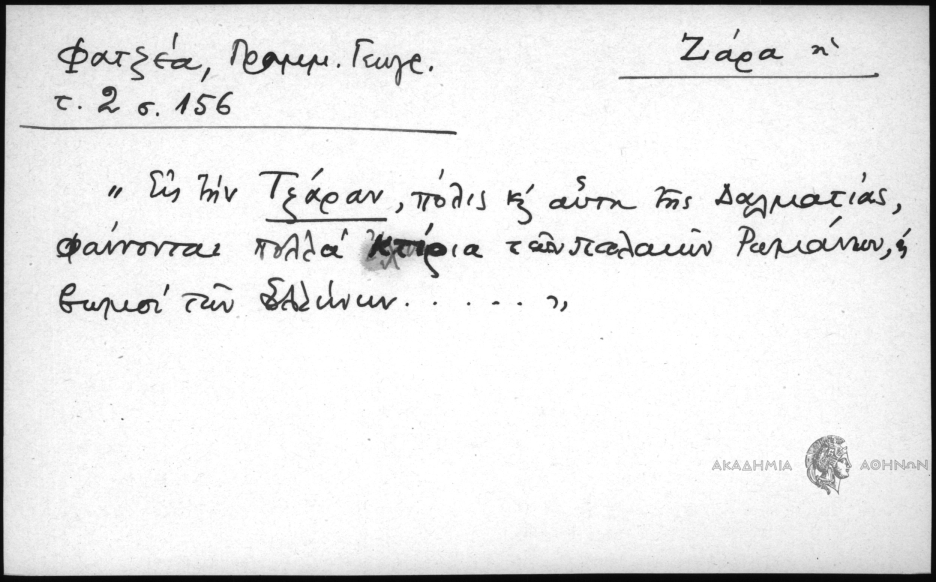 Φατζέα, Γραμμ. Γεωγρ.
τ. 2 σ. 156
Ζάρα ἡ
„ Εἰς τὴν Τζάραν, πόλις κ̀ αὕτη τῆς Δαλματίας,
φαίνονται πολλὰ κτίρια τῶν παλαιῶν Ρωμάνων, κ̀
βωμοὶ τῶν Ἑλλήνων. . . . . . "
ΑΚΑΔΗΜΙΑ ΑΘΗΝΩΝ